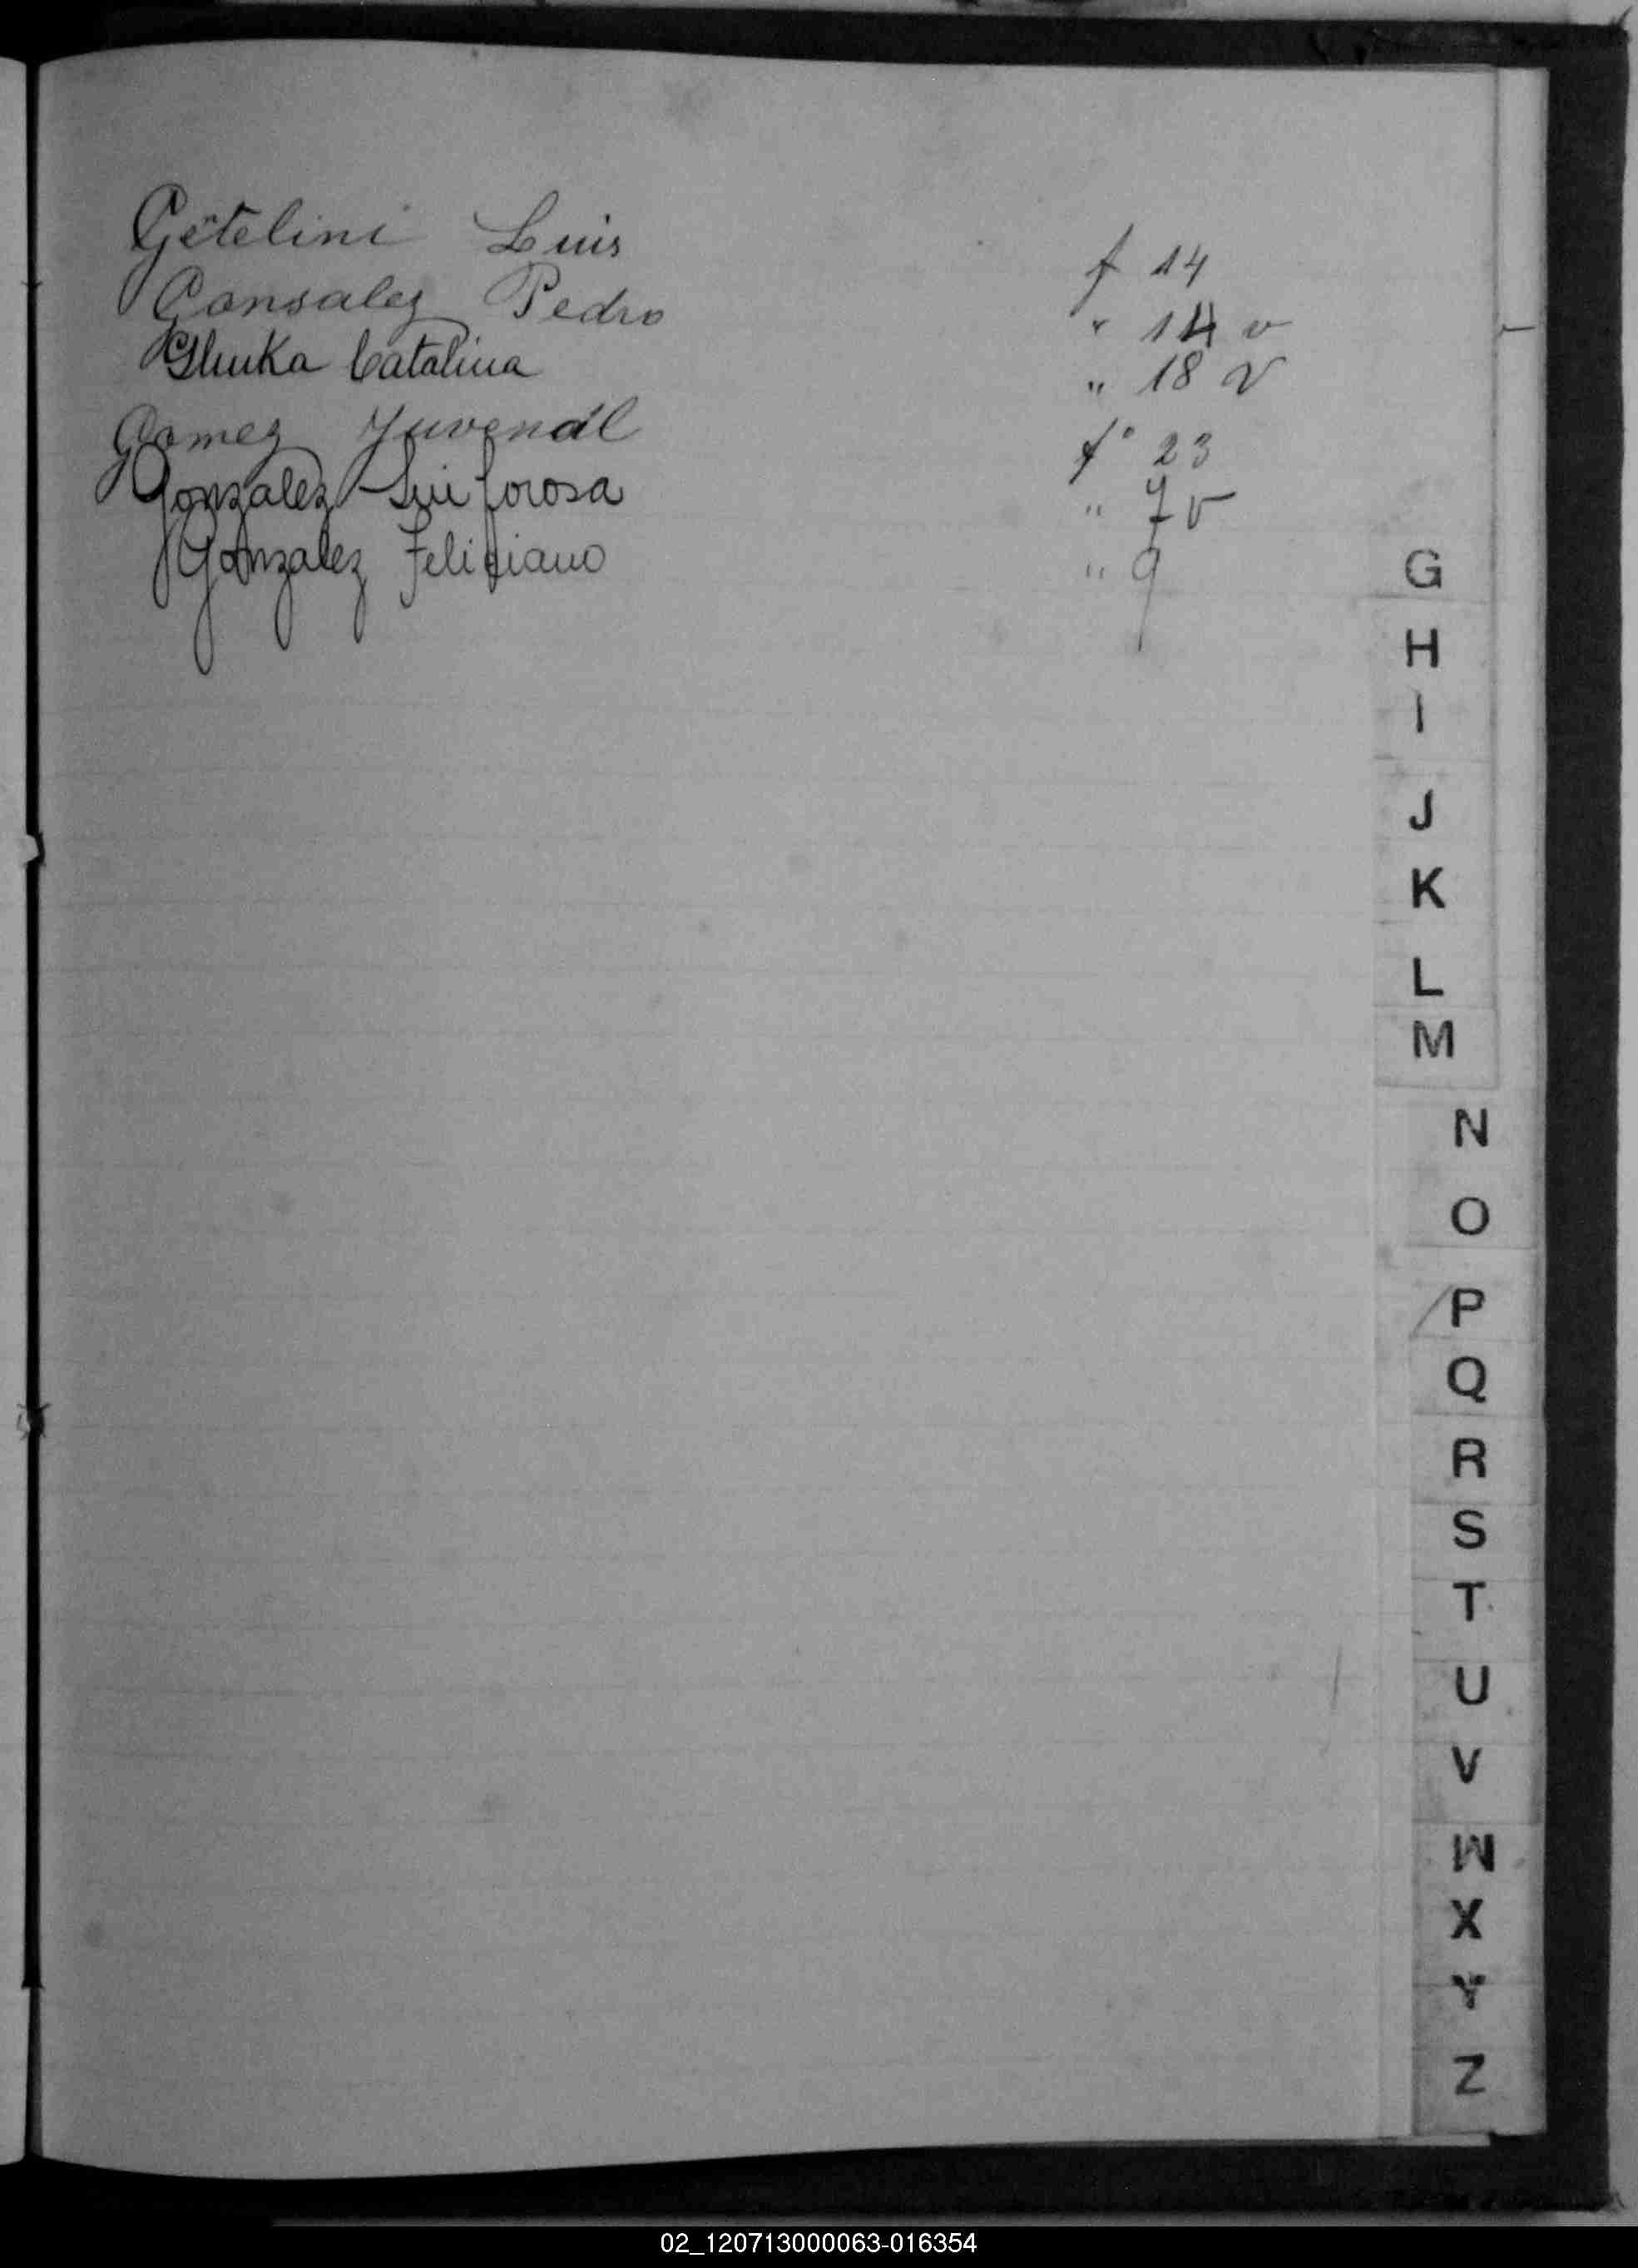 Getelini Luis f 14
Gonsalez Pedro " 14 v
Gluka Catalina " 18 v
Gomez Juvenal f° 23
Gonzalez Sinforosa " 7 v
Gonzalez Feliciano " 9
G
H
I
J
K
L
M
N
O
P
Q
R
S
T
U
V
W
X
Y
Z
02_120713000063-016354